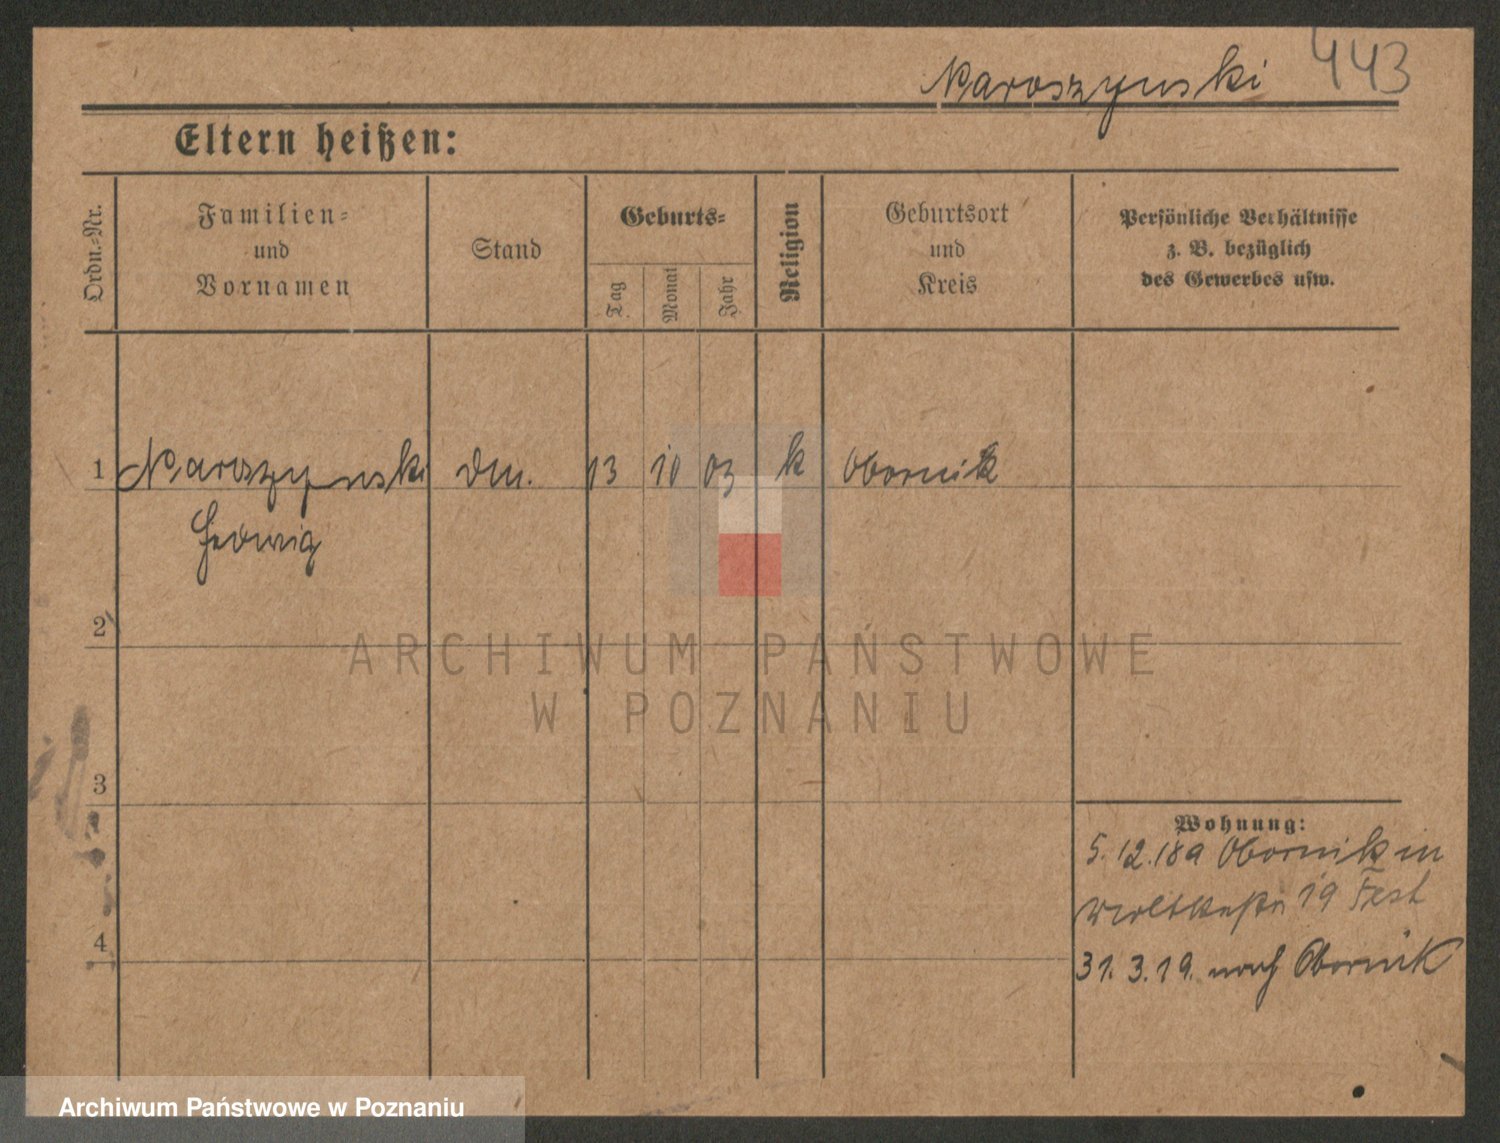 Naroszynski 443
Eltern heißen:
Ordn.-Nr.
Familien-
und
Vornamen
Stand
Geburts-
Tag
Monat
Jahr
Religion
Geburtsort
und
Kreis
Persönliche Verhältnisse
z. B. bezüglich
des Gewerbes usw.
1 Naroszynski 13 10 03 k Obornik
Hedwig
2
3
4
Wohnung:
5. 12. 18 Obornik in
19
31. 3. 19. nach Obornik
ARCHIWUM PAŃSTWOWE
W POZNANIU
Archiwum Państwowe w Poznaniu